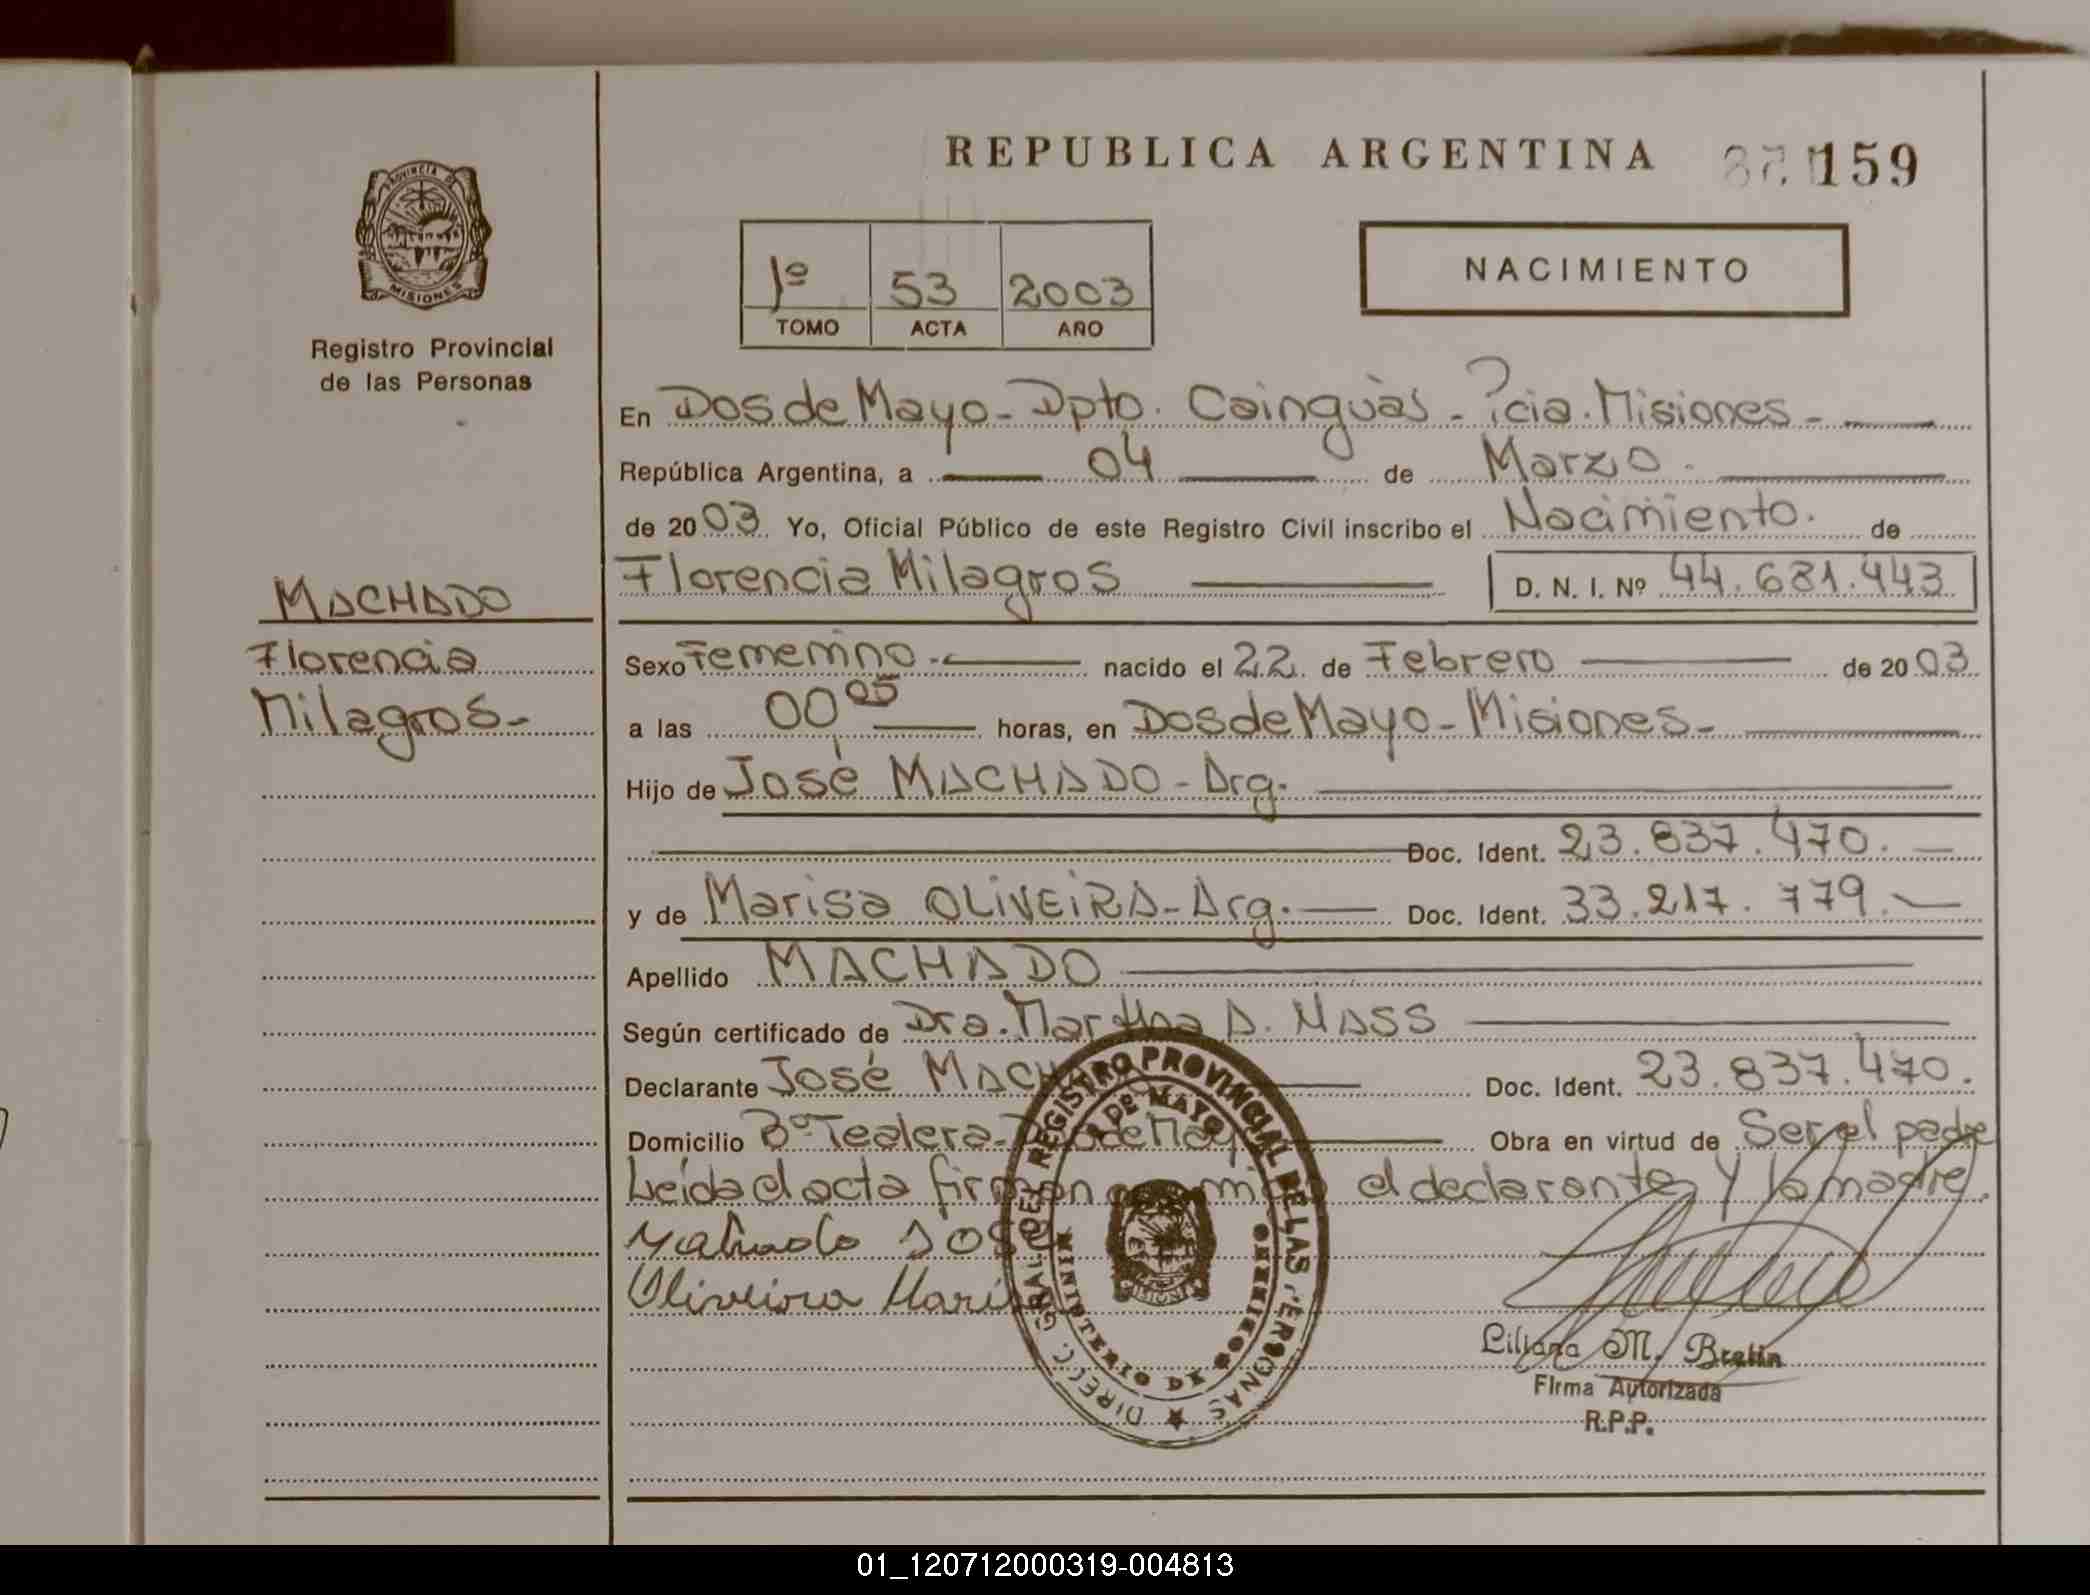 REPUBLICA ARGENTINA
159
PROVINCIA DE
MISIONES
Registro Provincial
de las Personas
1º 53 2003
TOMO ACTA AÑO
NACIMIENTO
En Dos de Mayo - Dpto. Cainguàs - Pcia. Misiones -
República Argentina, a 04 de Marzo.
de 2003 Yo, Oficial Público de este Registro Civil inscribo el Nacimiento. de
Florencia Milagros D. N. I. Nº 44.681.443
MACHADO
Florencia
Milagros-
Sexo Femenino - nacido el 22 de Febrero de 2003
a las 00 05 horas, en Dos de Mayo - Misiones -
Hijo de José MACHADO - Arg.
Doc. Ident. 23.837.470.
y de Marisa OLIVEIRA - Arg. Doc. Ident. 33.217.779.
Apellido MACHADO
Según certificado de Dra. Martha A. MASS
Declarante José Doc. Ident. 23.837.470.
Domicilio Bº Tealera - Obra en virtud de Ser el padre
Leída el acta firman el declarante y la madre.
Machado José
Oliveira
DIRECC. GRAL. DEL REGISTRO PROVINCIAL DE LAS PERSONAS
2 DE MAYO
MINISTERIO DE GOBIERNO
MISIONES
Liliana M.
Firma Autorizada
R.P.P.
01_120712000319-004813